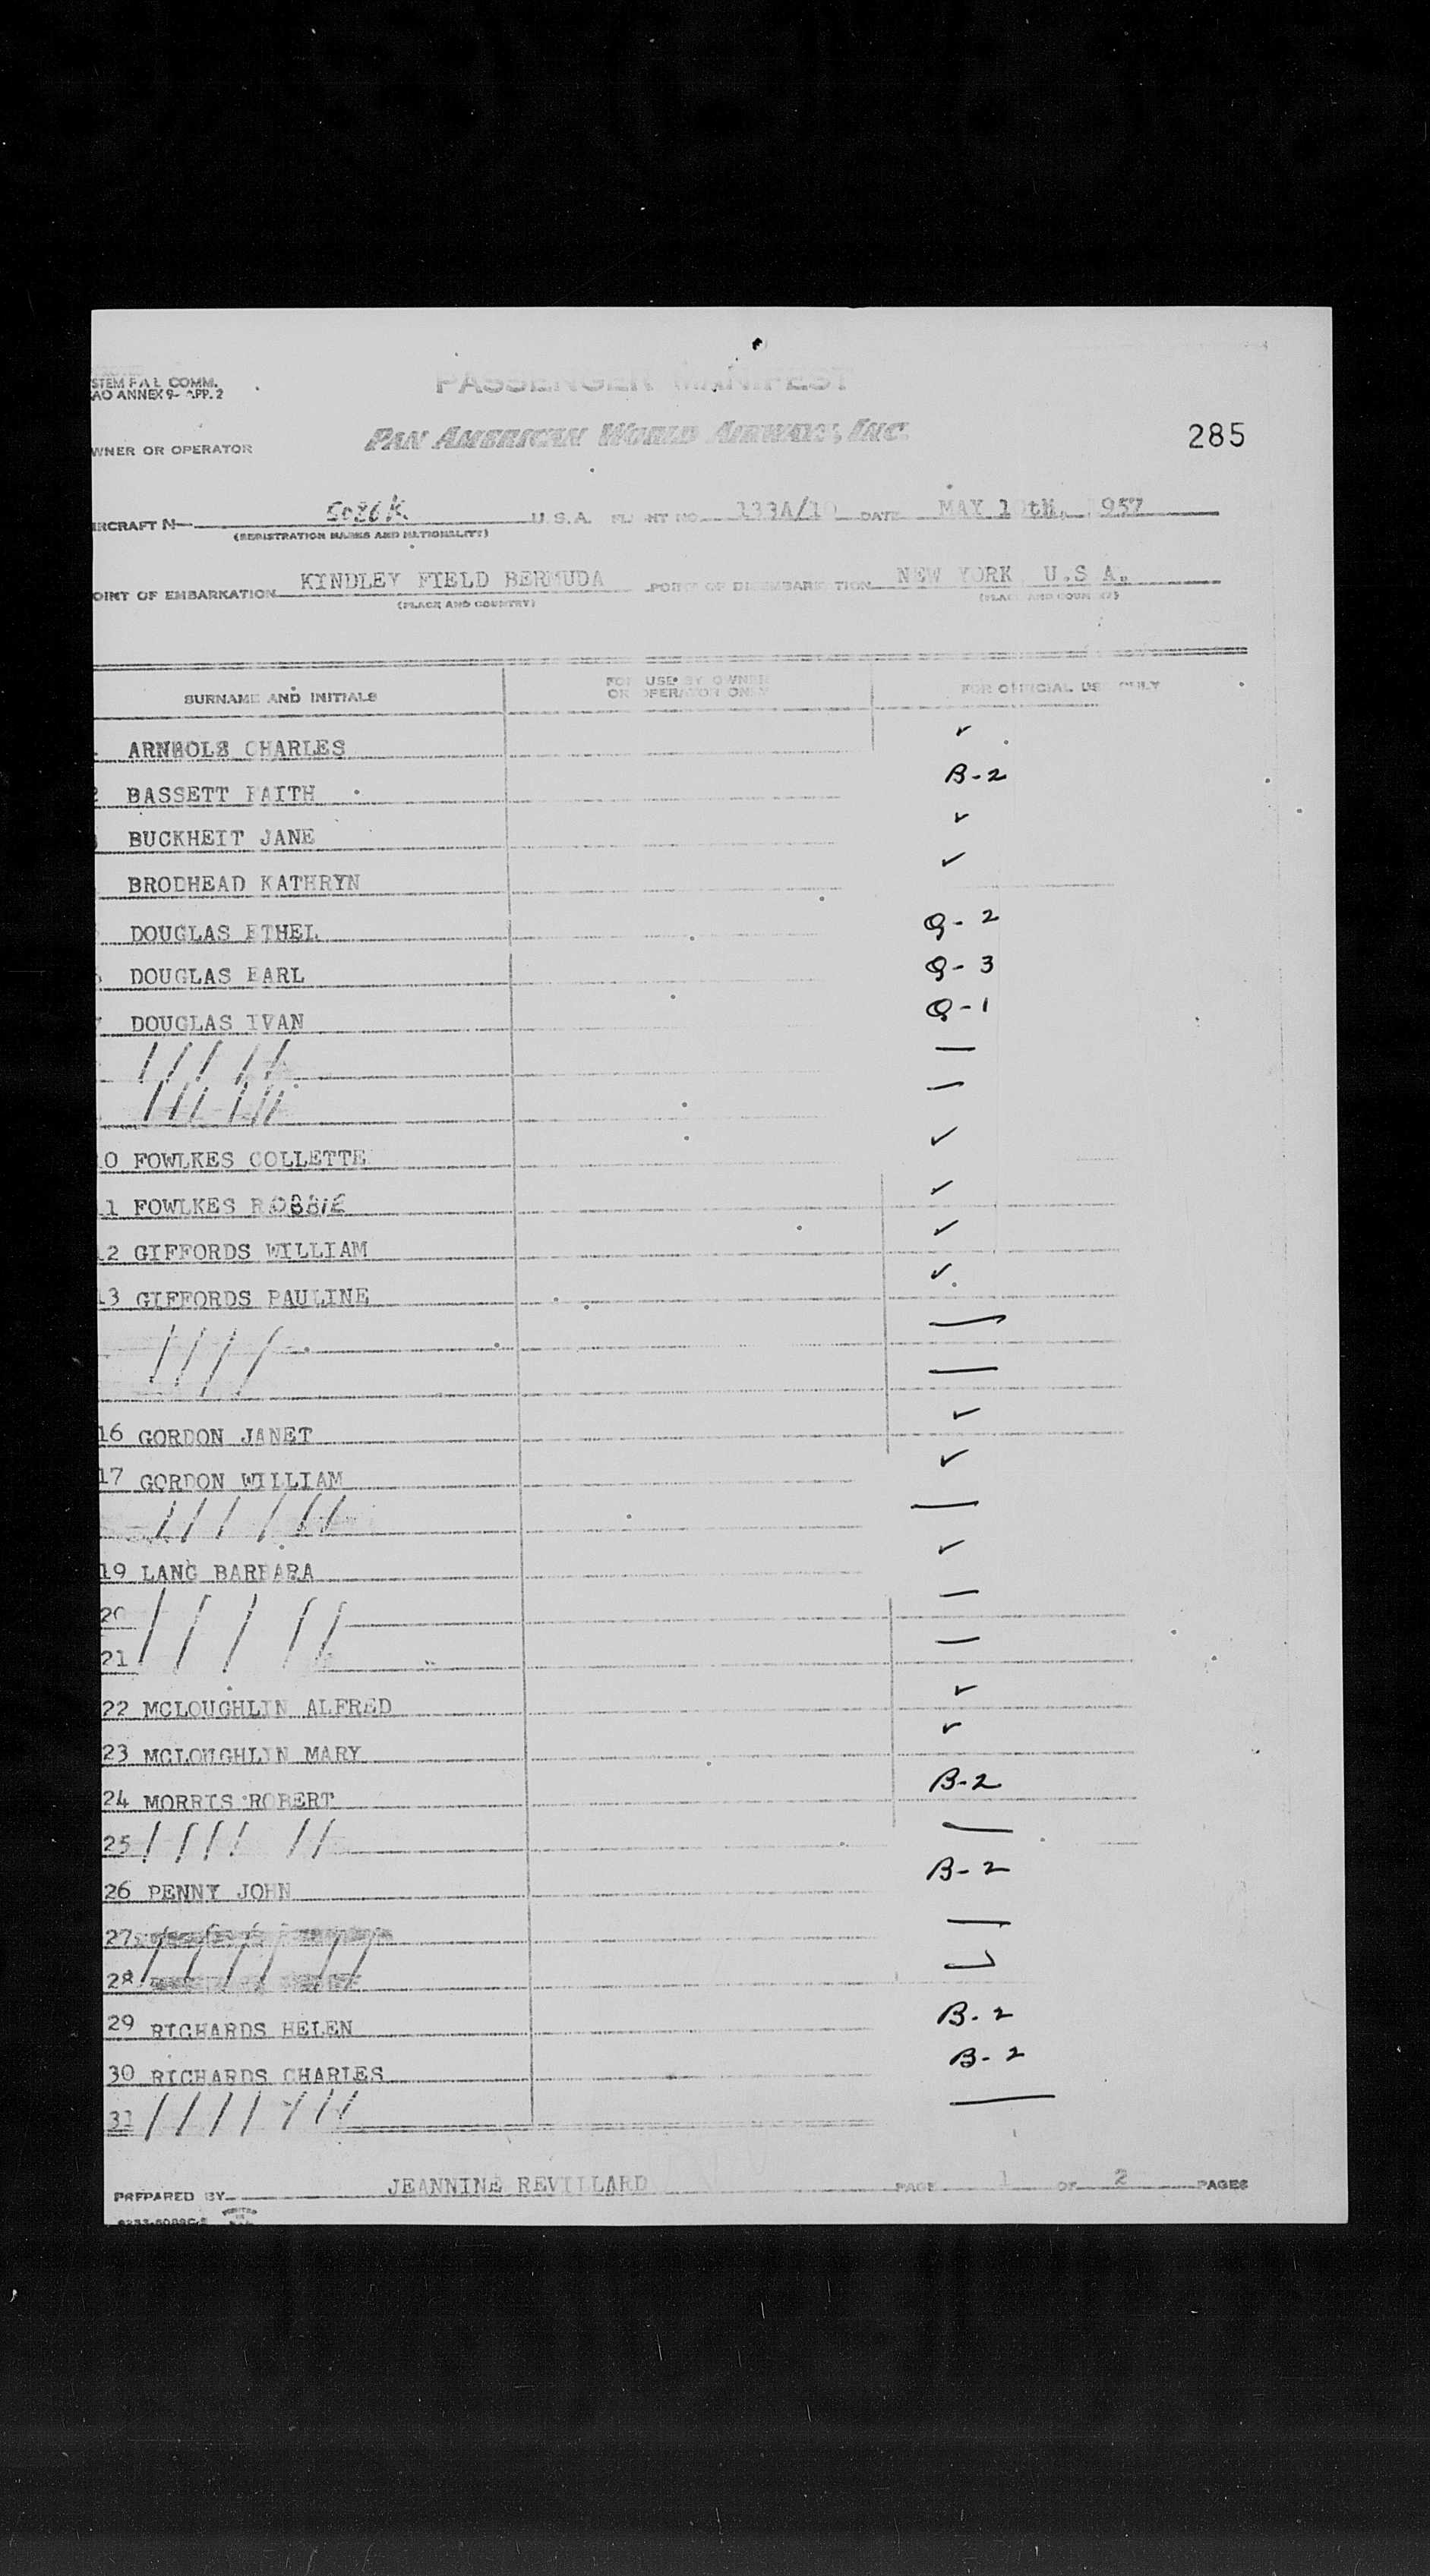 STEM F.A.L. COMM.
AO ANNEX 9- APP. 2
PASSENGER MANIFEST
WNER OR OPERATOR
PAN AMERICAN WORLD AIRWAYS, INC.
285
IRCRAFT N- 5026K U.S.A. FLIGHT NO. 133A/10 DATE MAY 10th, 1957
(REGISTRATION MARKS AND NATIONALITY)
OINT OF EMBARKATION KINDLEY FIELD BERMUDA POINT OF DISEMBARKATION NEW YORK U.S A.
(PLACE AND COUNTRY) (PLACE AND COUNTRY)
SURNAME AND INITIALS FOR USE BY OWNER OR OPERATOR ONLY FOR OFFICIAL USE ONLY
CHARLES ✓
2 BASSETT FAITH B-2
BUCKHEIT JANE ✓
BRODHEAD KATHRYN ✓
DOUGLAS ETHEL Q-2
6 DOUGLAS EARL Q-3
7 DOUGLAS IVAN Q-1
///// —
/////// —
10 FOWLKES COLLETTE ✓
11 FOWLKES ROBBIE ✓
12 GIFFORDS WILLIAM ✓
13 GIFFORDS PAULINE ✓
//// —
—
16 GORDON JANET ✓
17 GORDON WILLIAM ✓
////// —
19 LANG BARBARA ✓
20 ///// —
21 —
22 MCLOUGHLIN ALFRED ✓
23 MCLOUGHLIN MARY ✓
24 MORRIS ROBERT B-2
25 //// // —
26 PENNY JOHN B-2
27 —
28 —
29 RICHARDS HELEN B-2
30 RICHARDS CHARLES B-2
31 /////// —
PREPARED BY JEANNINE REVILLARD PAGE 1 OF 2 PAGES